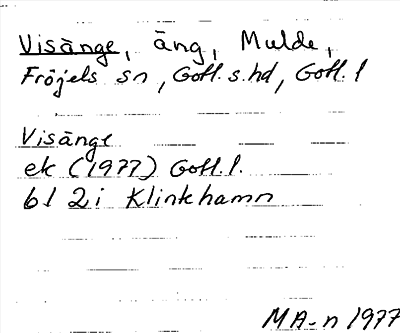 Visänge, äng, Mulde,
Fröjels sn, Gotl. s. hd, Gotl. l
Visänge
ek (1977) Gotl. l.
bl 2 i Klinkhamn
MA-n 1977